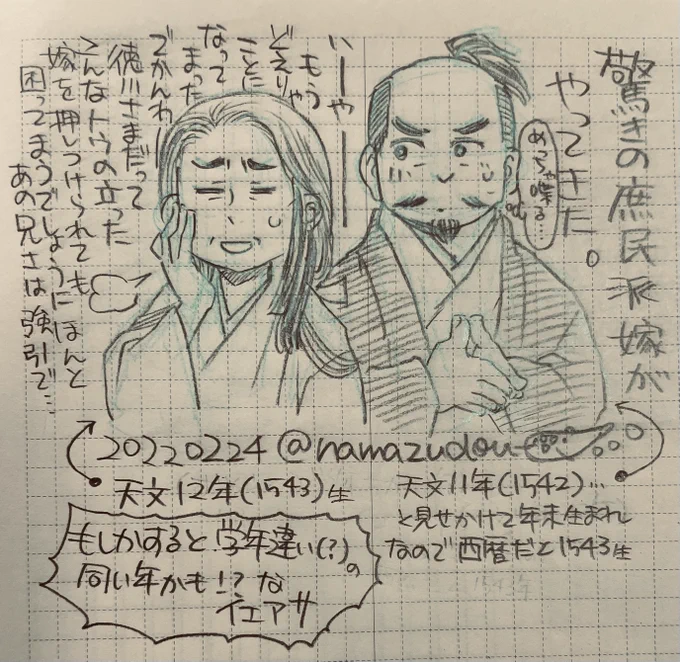 驚きの庶民派嫁が
やってきた。
めっちゃ喋る…
いーやーーー
もう
どえりゃ
ことに
なって
まった
でかんわー
徳川さまだって
こんなトウの立った
嫁を押しつけられても
困ってまうでしょうにほんと
あの兄さは強引で…
20220224 @namazudou
天文12年(1543)生
天文11年(1542)…
と見せかけて年末生まれ
なので西暦だと1543生
もしかすると学年違い(?)の
同い年かも!?な
イエアサ